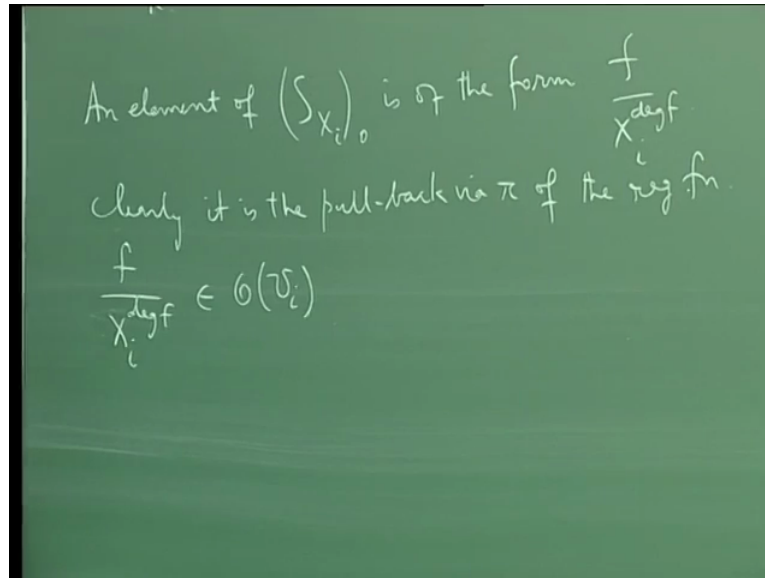 An element of (S_{X_i})_0 is of the form f / X_i^{deg f}.
clearly it is the pull-back via π of the reg fn.
f / X_i^{deg f} ∈ O(U_i)